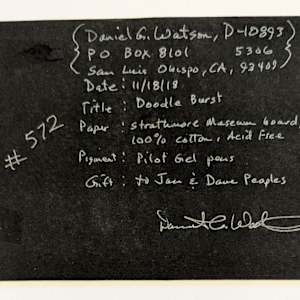 (Daniel G. Watson, D-10893)
P O Box 8101 5306
San Luis Obispo, CA, 93409
Date: 11/18/18
Title: Doodle Burst
Paper: Strathmore Museum board
100% cotton, Acid Free
Pigment: Pilot Gel pens
Gift: to Jan & Dave Peoples
#572